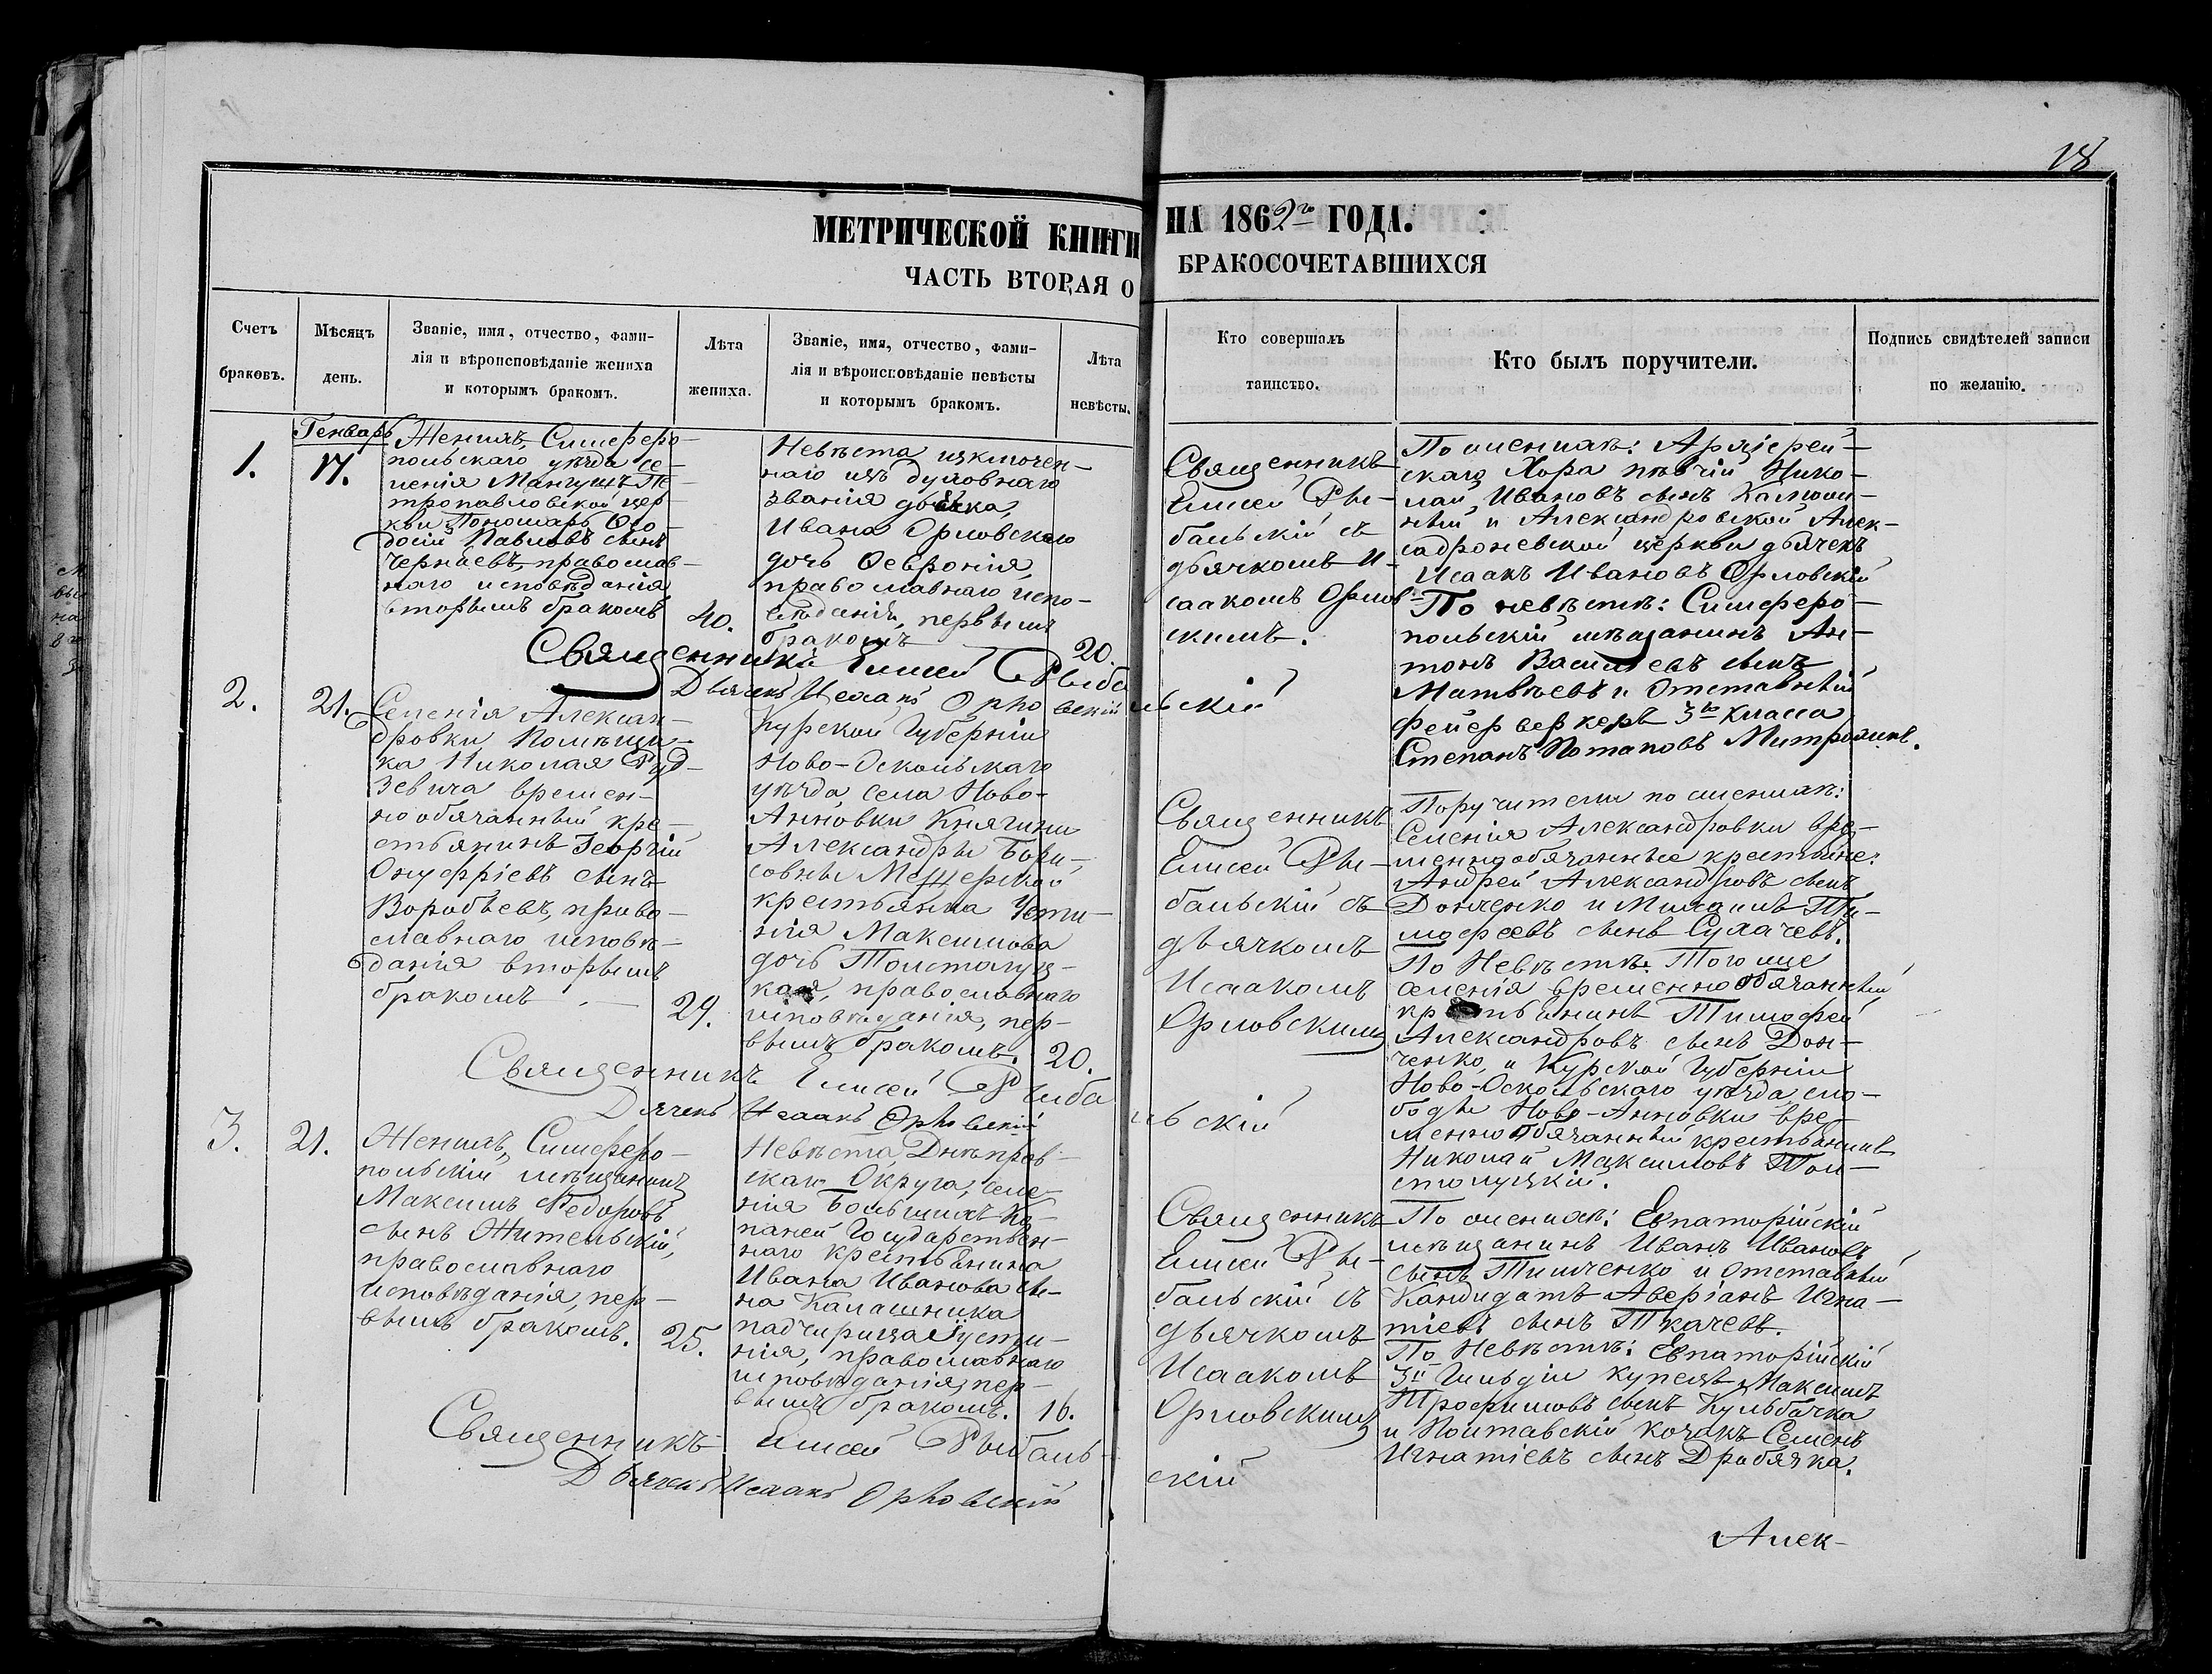 18
МЕТРИЧЕСКОЙ КНИГИ НА 1862го ГОДА.
ЧАСТЬ ВТОРАЯ О БРАКОСОЧЕТАВШИХСЯ
Счетъ браковъ.
Мѣсяцъ день.
Званіе, имя, отчество, фами-
лія и вѣроисповѣданіе жениха
и которымъ бракомъ.
Лѣта жениха.
Званіе, имя, отчество, фами-
лія и вѣроисповѣданіе невѣсты
и которымъ бракомъ.
Лѣта невѣсты.
Кто совершалъ таинство.
Кто былъ поручители.
Подпись свидѣтелей записи
по желанію.
1.
Генварь
17.
Женихъ, Симферо-
польскаго уѣзда се-
ленія Мангушъ Пе-
тропавловской цер
кви Пономарь Ѳео-
досій Павловъ сынъ
Чернаевъ, православ-
наго исповѣданія
вторымъ бракомъ
40.
Невѣста изключен-
наго изъ духовнаго
званія дьячка,
Ивана Орловскаго
дочь Ѳевронія,
православнаго испо-
вѣданія, первымъ
бракомъ
20.
Священникъ
Елисей Ры-
бальскій съ
дьячкомъ И-
саакомъ Орлов-
скимъ.
По женихѣ: Архіерей-
скаго Хора пѣвчій Нико-
лай Ивановъ сынъ
и Александровской Алек-
садроневской церкви дьячекъ
Исаакъ Ивановъ Орловскій
По невѣстѣ: Симферо-
польскій мѣщанинъ Ан-
тонъ Васильевъ сынъ
Матвѣевъ и Отставный
фейерверкеръ 3го класса
Степанъ Потаповъ
Священникъ Елисей Рыбальскій
Дьячекъ Исаакъ Орловскій
2.
21.
Селенія Алексан-
дровки Помѣщи-
ка Николая Руд-
зевича времен-
но обязанный кре-
стьянинъ Георгій
Онуфріевъ сынъ
Воробьевъ, право-
славнаго исповѣ-
данія вторымъ
бракомъ
29.
Курской Губерніи
Ново-Оскольскаго
уѣзда, села Ново-
Анновки Княгини
Александры Бори-
совны Мещерской
крестьянка Усти-
нія Максимова
дочь Толстолуц-
кая, православнаго
исповѣданія, пер-
вымъ бракомъ.
20.
Священникъ
Елисей Ры-
бальскій съ
дьячкомъ
Исаакомъ
Орловскимъ
Поручители по женихѣ:
Селенія Александровки вре-
менно обязанные крестьяне:
Андрей Александровъ сынъ
Донченко и Михаилъ Ти-
мофеевъ сынъ Сухачевъ.
По Невѣстѣ: Того же
селенія временно обязанный
крестьянинъ Тимофей
Александровъ сынъ Дон-
ченко, и Курской Губерніи
Ново-Оскольскаго уѣзда, сло-
боды Ново-Анновки вре-
менно обязанный крестьянинъ
Николай Максимовъ Тол-
столуцкій.
Священникъ Елисей Рыбальскій
Дьячекъ Исаакъ Орловскій
3.
21.
Женихъ, Симферо-
польскій мѣщанинъ
Максимъ Ѳедоровъ
сынъ Жительскій,
православнаго
исповѣданія, пер-
вымъ бракомъ.
25.
Невѣста, Днѣпров-
скаго Округа, селе-
нія Большихъ Ко-
паней Государствен-
наго крестьянина
Ивана Иванова сы-
на Калашника
падчирица Іусти-
нія, православнаго
исповѣданія, пер-
вымъ бракомъ.
16.
Священникъ
Елисей Ры-
бальскій съ
дьячкомъ
Исаакомъ
Орловскимъ
По женихѣ: Евпаторійскій
мѣщанинъ Иванъ Ивановъ
сынъ Тимченко и отставный
Кандидатъ Аверіанъ Игна-
тіевъ сынъ Ткачевъ.
По Невѣстѣ: Евпаторійскій
3й Гильдіи купецъ Максимъ
Трофимовъ сынъ Кульбачка
и Полтавскій Козакъ Семенъ
Игнатіевъ сынъ Дробязка.
Священникъ Елисей Рыбальскій
Дьячекъ Исаакъ Орловскій
Алек-